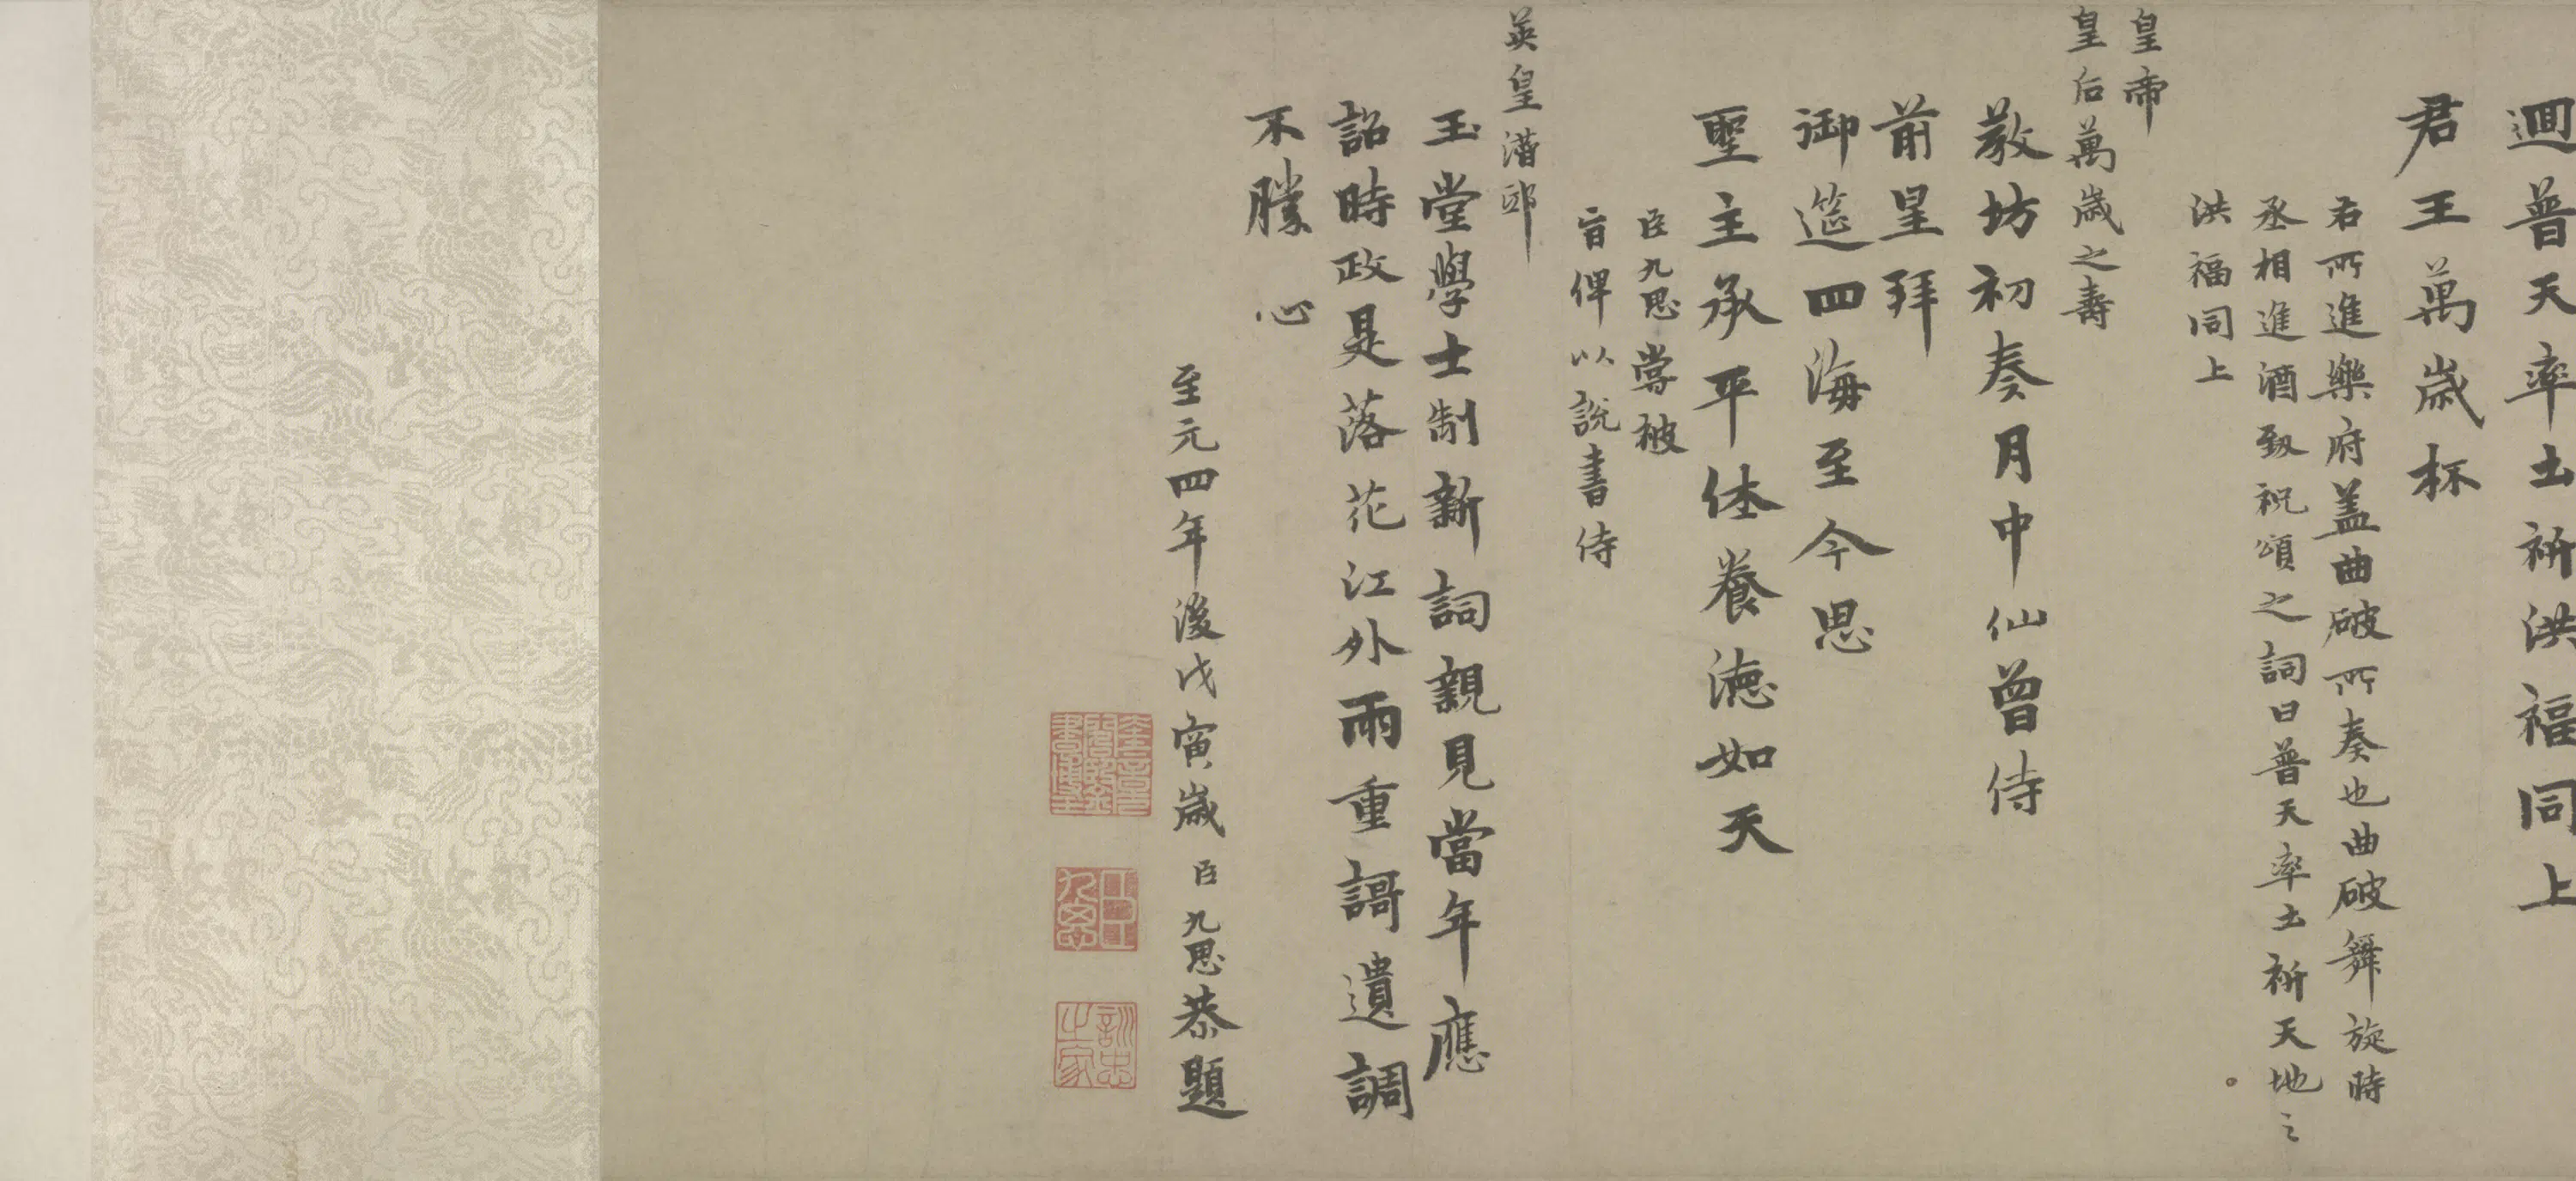 迴普天率土祈洪福同上
君王萬歲杯
右所進樂府蓋曲破所奏也曲破舞旋時
丞相進酒致祝頌之詞曰普天率土祈天地之
洪福同上
皇帝
皇后萬歲之壽
教坊初奏月中仙曾侍
前星拜
御筵四海至今思
聖主承平体養德如天
臣九思嘗被
旨俾以說書侍
英皇潛邸
玉堂學士制新詞親見當年應
詔時政是落花江外雨重謌遺調
不勝心
至元四年後戊寅歲臣九思恭題
奎章閣鑒書博士
臣九思
訓忠之家